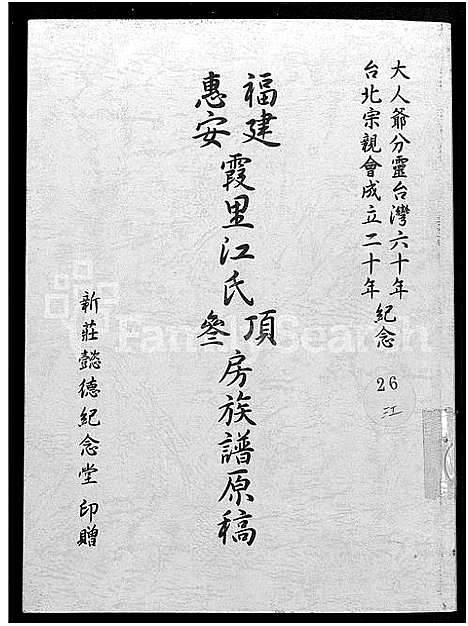 大人爺分靈台灣六十年
台北宗親會成立二十年
紀念
26
江
福建
惠安
霞里江氏
頂
叄
房族譜原稿
新莊懿德紀念堂 印贈
FamilySearch